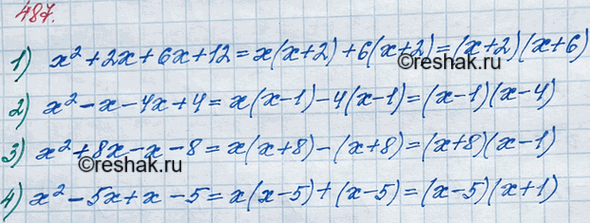 487.
1) x² + 2x + 6x + 12 = x(x+2) + 6(x+2) = (x+2)(x+6)
©reshak.ru
2) x² - x - 4x + 4 = x(x-1) - 4(x-1) = (x-1)(x-4)
3) x² + 8x - x - 8 = x(x+8) - (x+8) = (x+8)(x-1)
©reshak.ru
4) x² - 5x + x - 5 = x(x-5) + (x-5) = (x-5)(x+1)